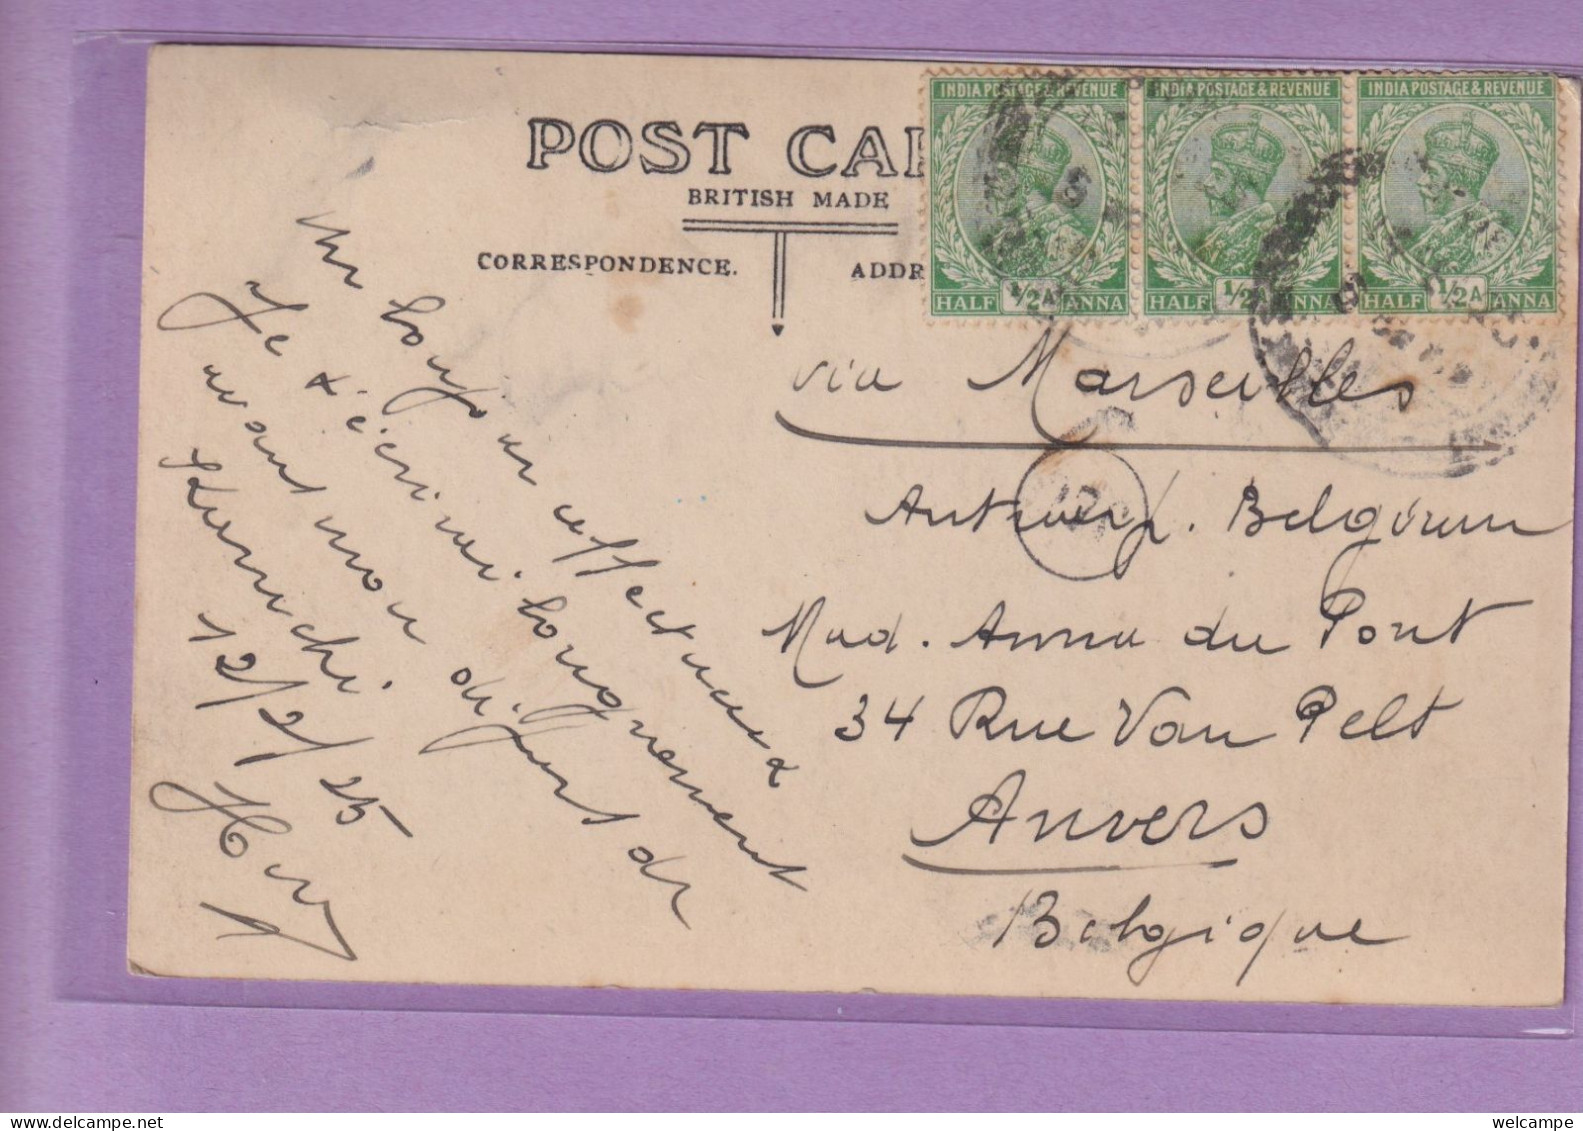 INDIA POSTAGE & REVENUE
INDIA POSTAGE & REVENUE
INDIA POSTAGE & REVENUE
HALF 1/2 A ANNA
HALF 1/2 A ANNA
HALF 1/2 A ANNA
POST CAR
BRITISH MADE
CORRESPONDENCE.
ADDR
Un bonjour affectueux
Je t'écrirai longuement
avant mon départ de
Karachi.
12/2/25
via Marseilles
Antwerp. Belgium
Mad. Anna du Pont
34 Rue Van Pelt
Anvers
Belgique
welcampe